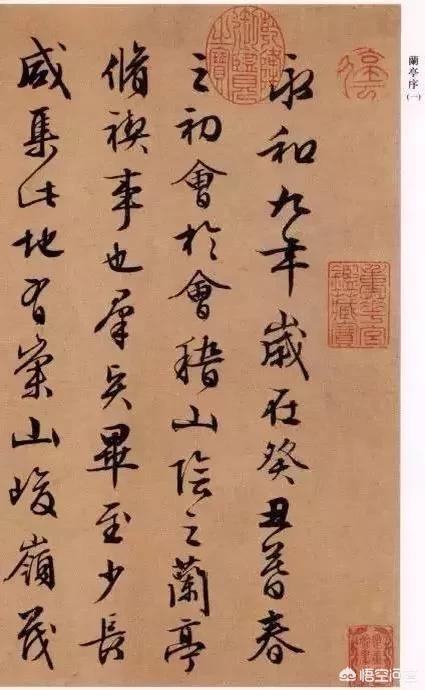 蘭亭序(一)
永和九年歲在癸丑暮春
之初會於會稽山陰之蘭亭
脩禊事也羣賢畢至少長
咸集此地有崇山峻嶺茂
乾隆御覽之寶
重華宮鑑藏寶
悟空问答